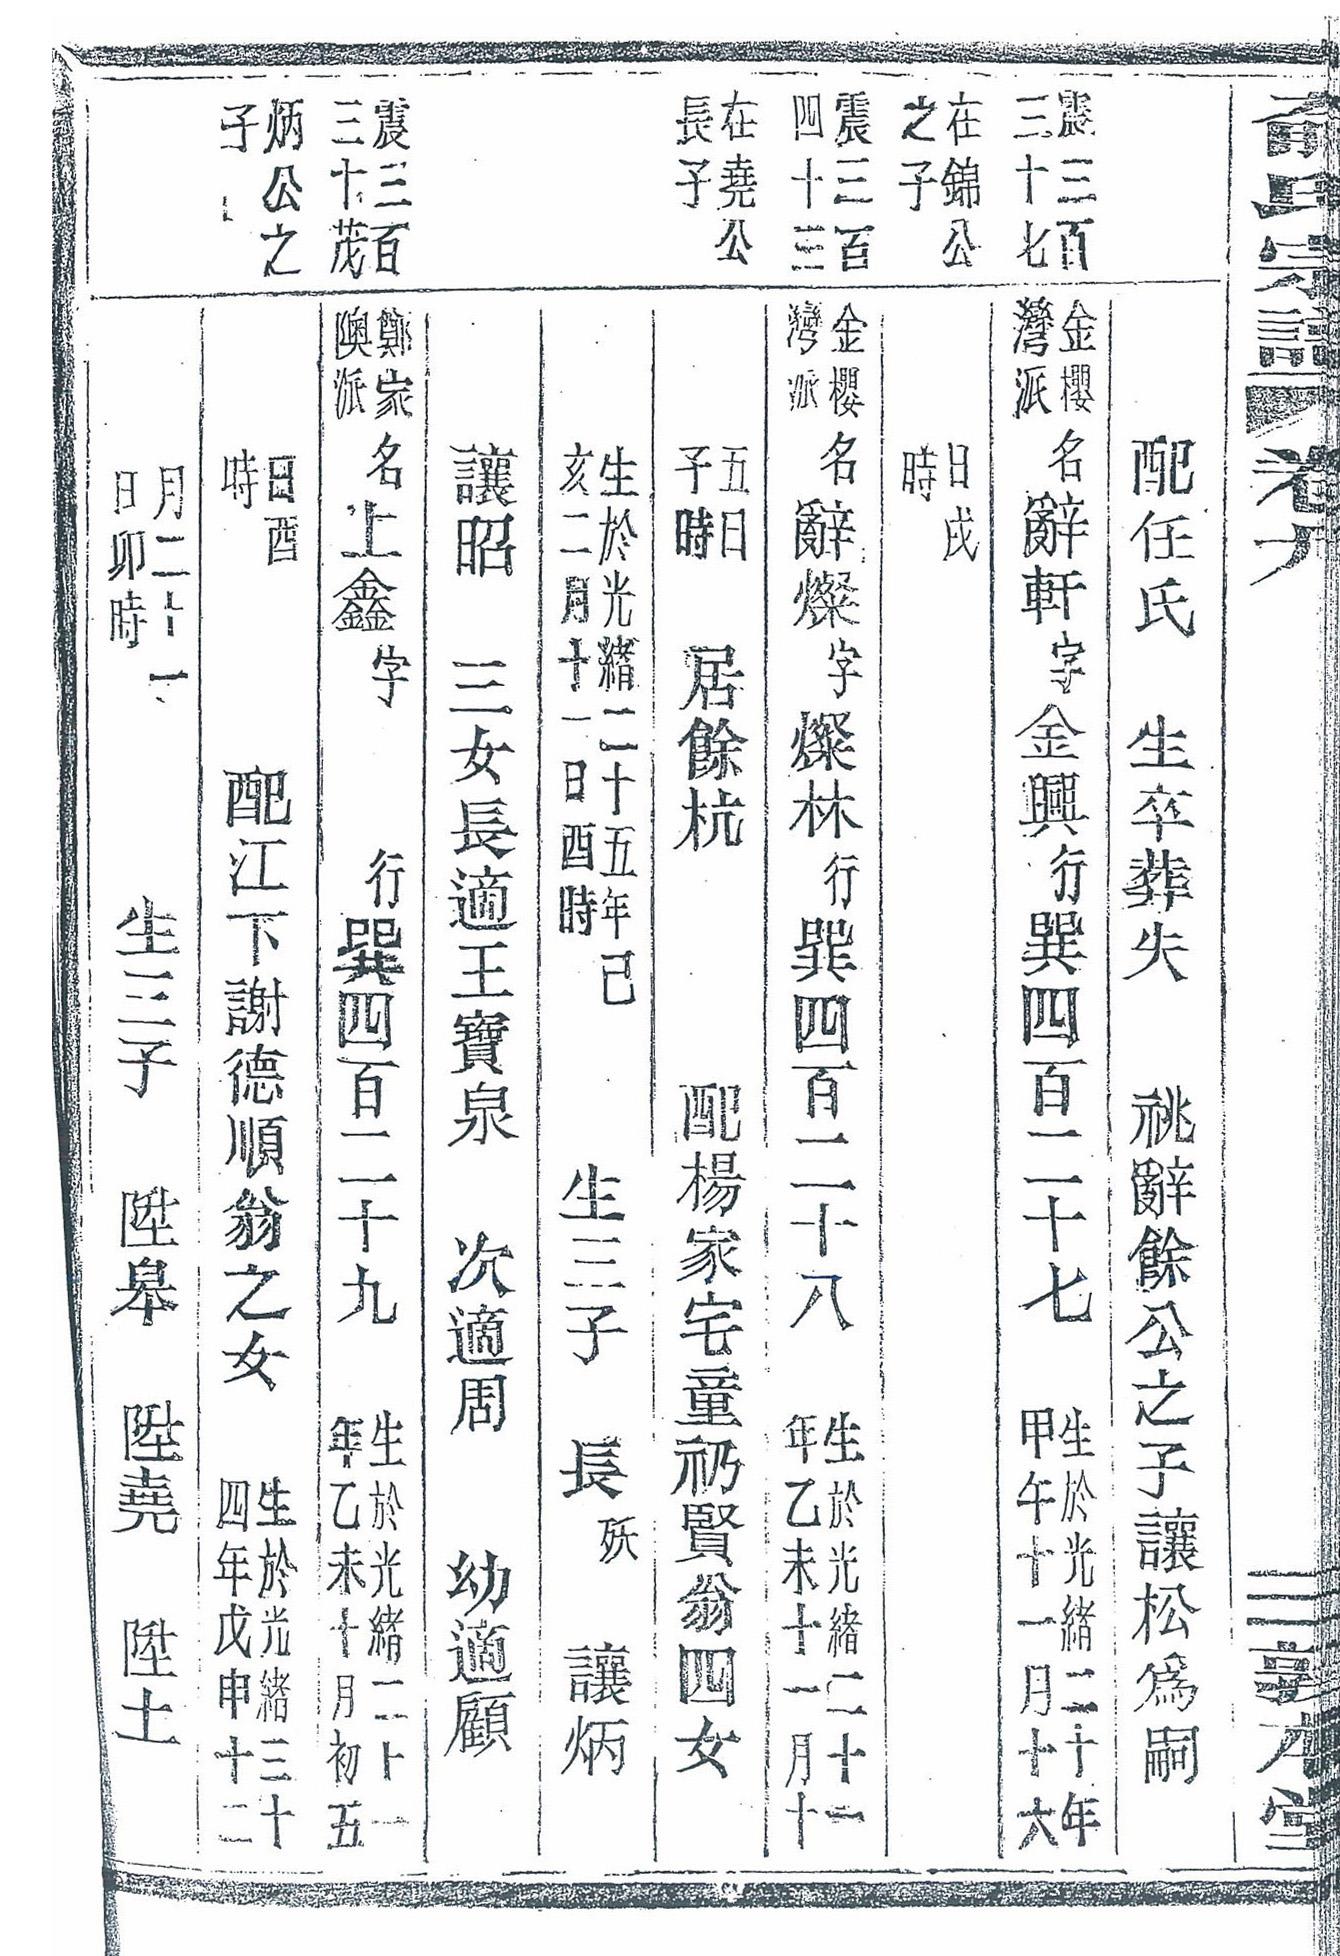 俞氏宗譜 卷六 三 敦本堂
配任氏 生卒葬失 祧辭餘公之子讓松爲嗣
震三百
三十七
金櫻
灣派
名辭軒字金興行巽四百二十七
生於光緒二十年
甲午十一月十六
在錦公
之子
日戌
時
震三百
四十三
金櫻
灣派
名辭燦字燦林行巽四百二十八
生於光緒二十一
年乙未十一月十
在堯公
長子
五日
子時
居餘杭 配楊家宅童礽賢翁四女
生於光緒二十五年己
亥二月十一日酉時
生三子 長 殀 讓炳
讓昭 三女長適王寶泉 次適周 幼適顧
震三百
三十茂
鄭家
隩派
名上鑫字 行巽四百二十九
生於光緒二十一
年乙未十月初五
炳公之
子
日酉
時
配江下謝德順翁之女
生於光緒三十
四年戊申十二
月二十一
日卯時
生三子 陞皋 陞堯 陞土